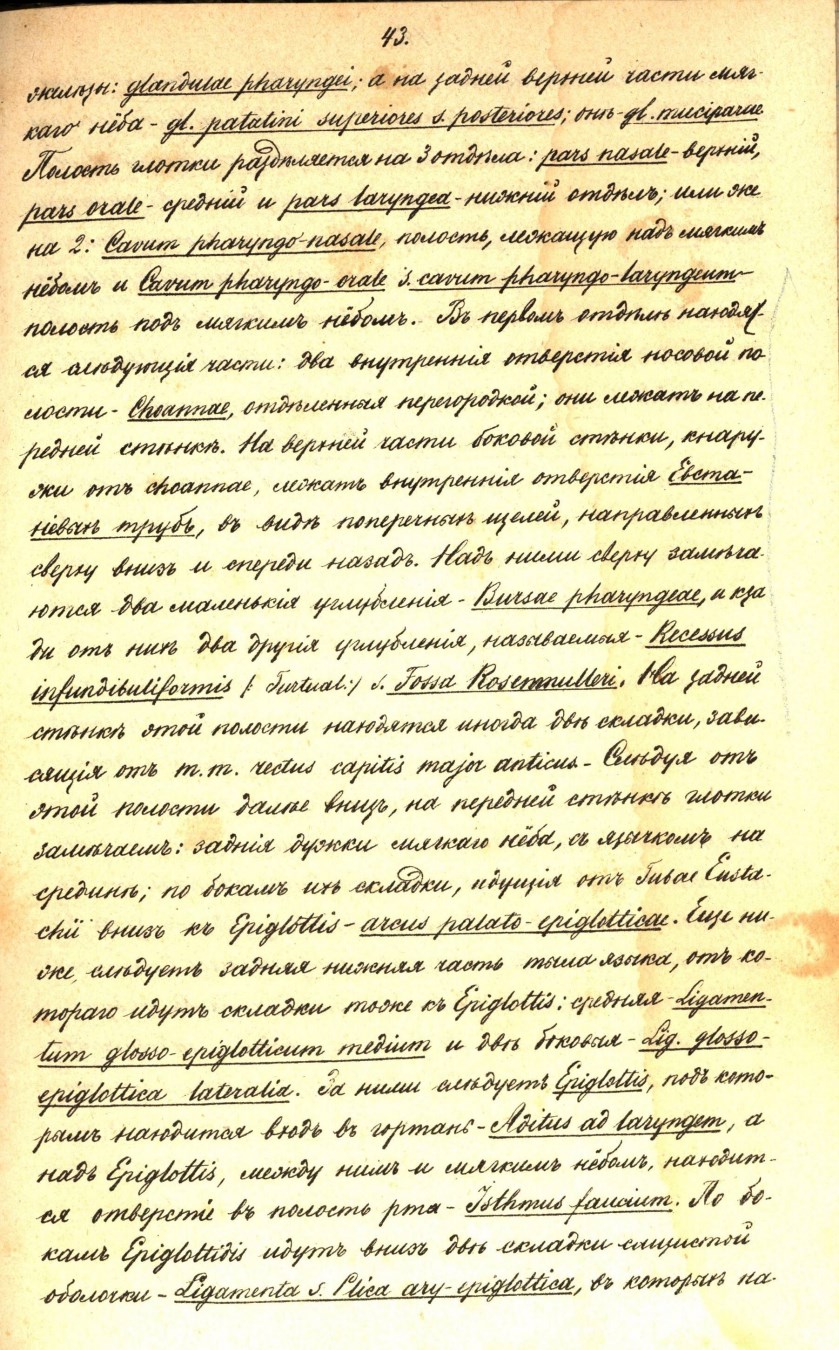 43.
желѣзы: glandulae pharyngei; а на задней верхней части мяг-
каго нёба - gl. palatini superiores s. posteriores; онѣ - gl. muciparae
Полость глотки раздѣляется на 3 отдѣла: pars nasale - верхній,
pars orale - средній и pars laryngea - нижній отдѣлъ; или же
на 2: Cavum pharyngo-nasale, полость, лежащую надъ мягкимъ
нёбомъ и Cavum pharyngo-orale s. cavum pharyngo-laryngeum -
полость подъ мягкимъ нёбомъ. Въ первомъ отдѣлѣ находят-
ся слѣдующія части: два внутреннія отверстія носовой по-
лости - Choannae, отдѣленныя перегородкой; они лежатъ на пе-
редней стѣнкѣ. На верхней части боковой стѣнки, кнару-
жи отъ choannae, лежатъ внутреннія отверстія Евста-
хіевыхъ трубъ, въ видѣ поперечныхъ щелей, направленныхъ
сверху внизъ и спереди назадъ. Надъ ними сверху замѣча-
ются два маленькія углубленія - Bursae pharyngeae, и кза
ди отъ нихъ два другія углубленія, называемыя - Recessus
infundibuliformis /: Turtual :/ s. Fossa Rosenmulleri. На задней
стѣнкѣ этой полости находятся иногда двѣ складки, зави-
сящія отъ m.m. rectus capitis major anticus - Слѣдуя отъ
этой полости далѣе внизъ, на передней стѣнкѣ глотки
замѣчаемъ: заднія дужки мягкаго нёба, съ язычкомъ на
срединѣ; по бокамъ ихъ складки, идущія отъ Tubae Eusta-
chii внизъ къ Epiglottis - arcus palato-epiglotticae. Еще ни-
же, слѣдуетъ задняя нижняя часть тыла языка, отъ ко-
тораго идутъ складки тоже къ Epiglottis: средняя - Ligamen-
tum glosso-epiglotticum medium и двѣ боковыя - Lig. glosso-
epiglottica lateralia. За ними слѣдуетъ Epiglottis, подъ кото-
рымъ находится входъ въ гортань - Aditus ad laryngem, а
надъ Epiglottis, между нимъ и мягкимъ нёбомъ, находит-
ся отверстіе въ полость рта - Isthmus faucium. По бо-
камъ Epiglottidis идутъ внизъ двѣ складки слизистой
оболочки - Ligamenta s. Plica ary-epiglottica, въ которыхъ на-